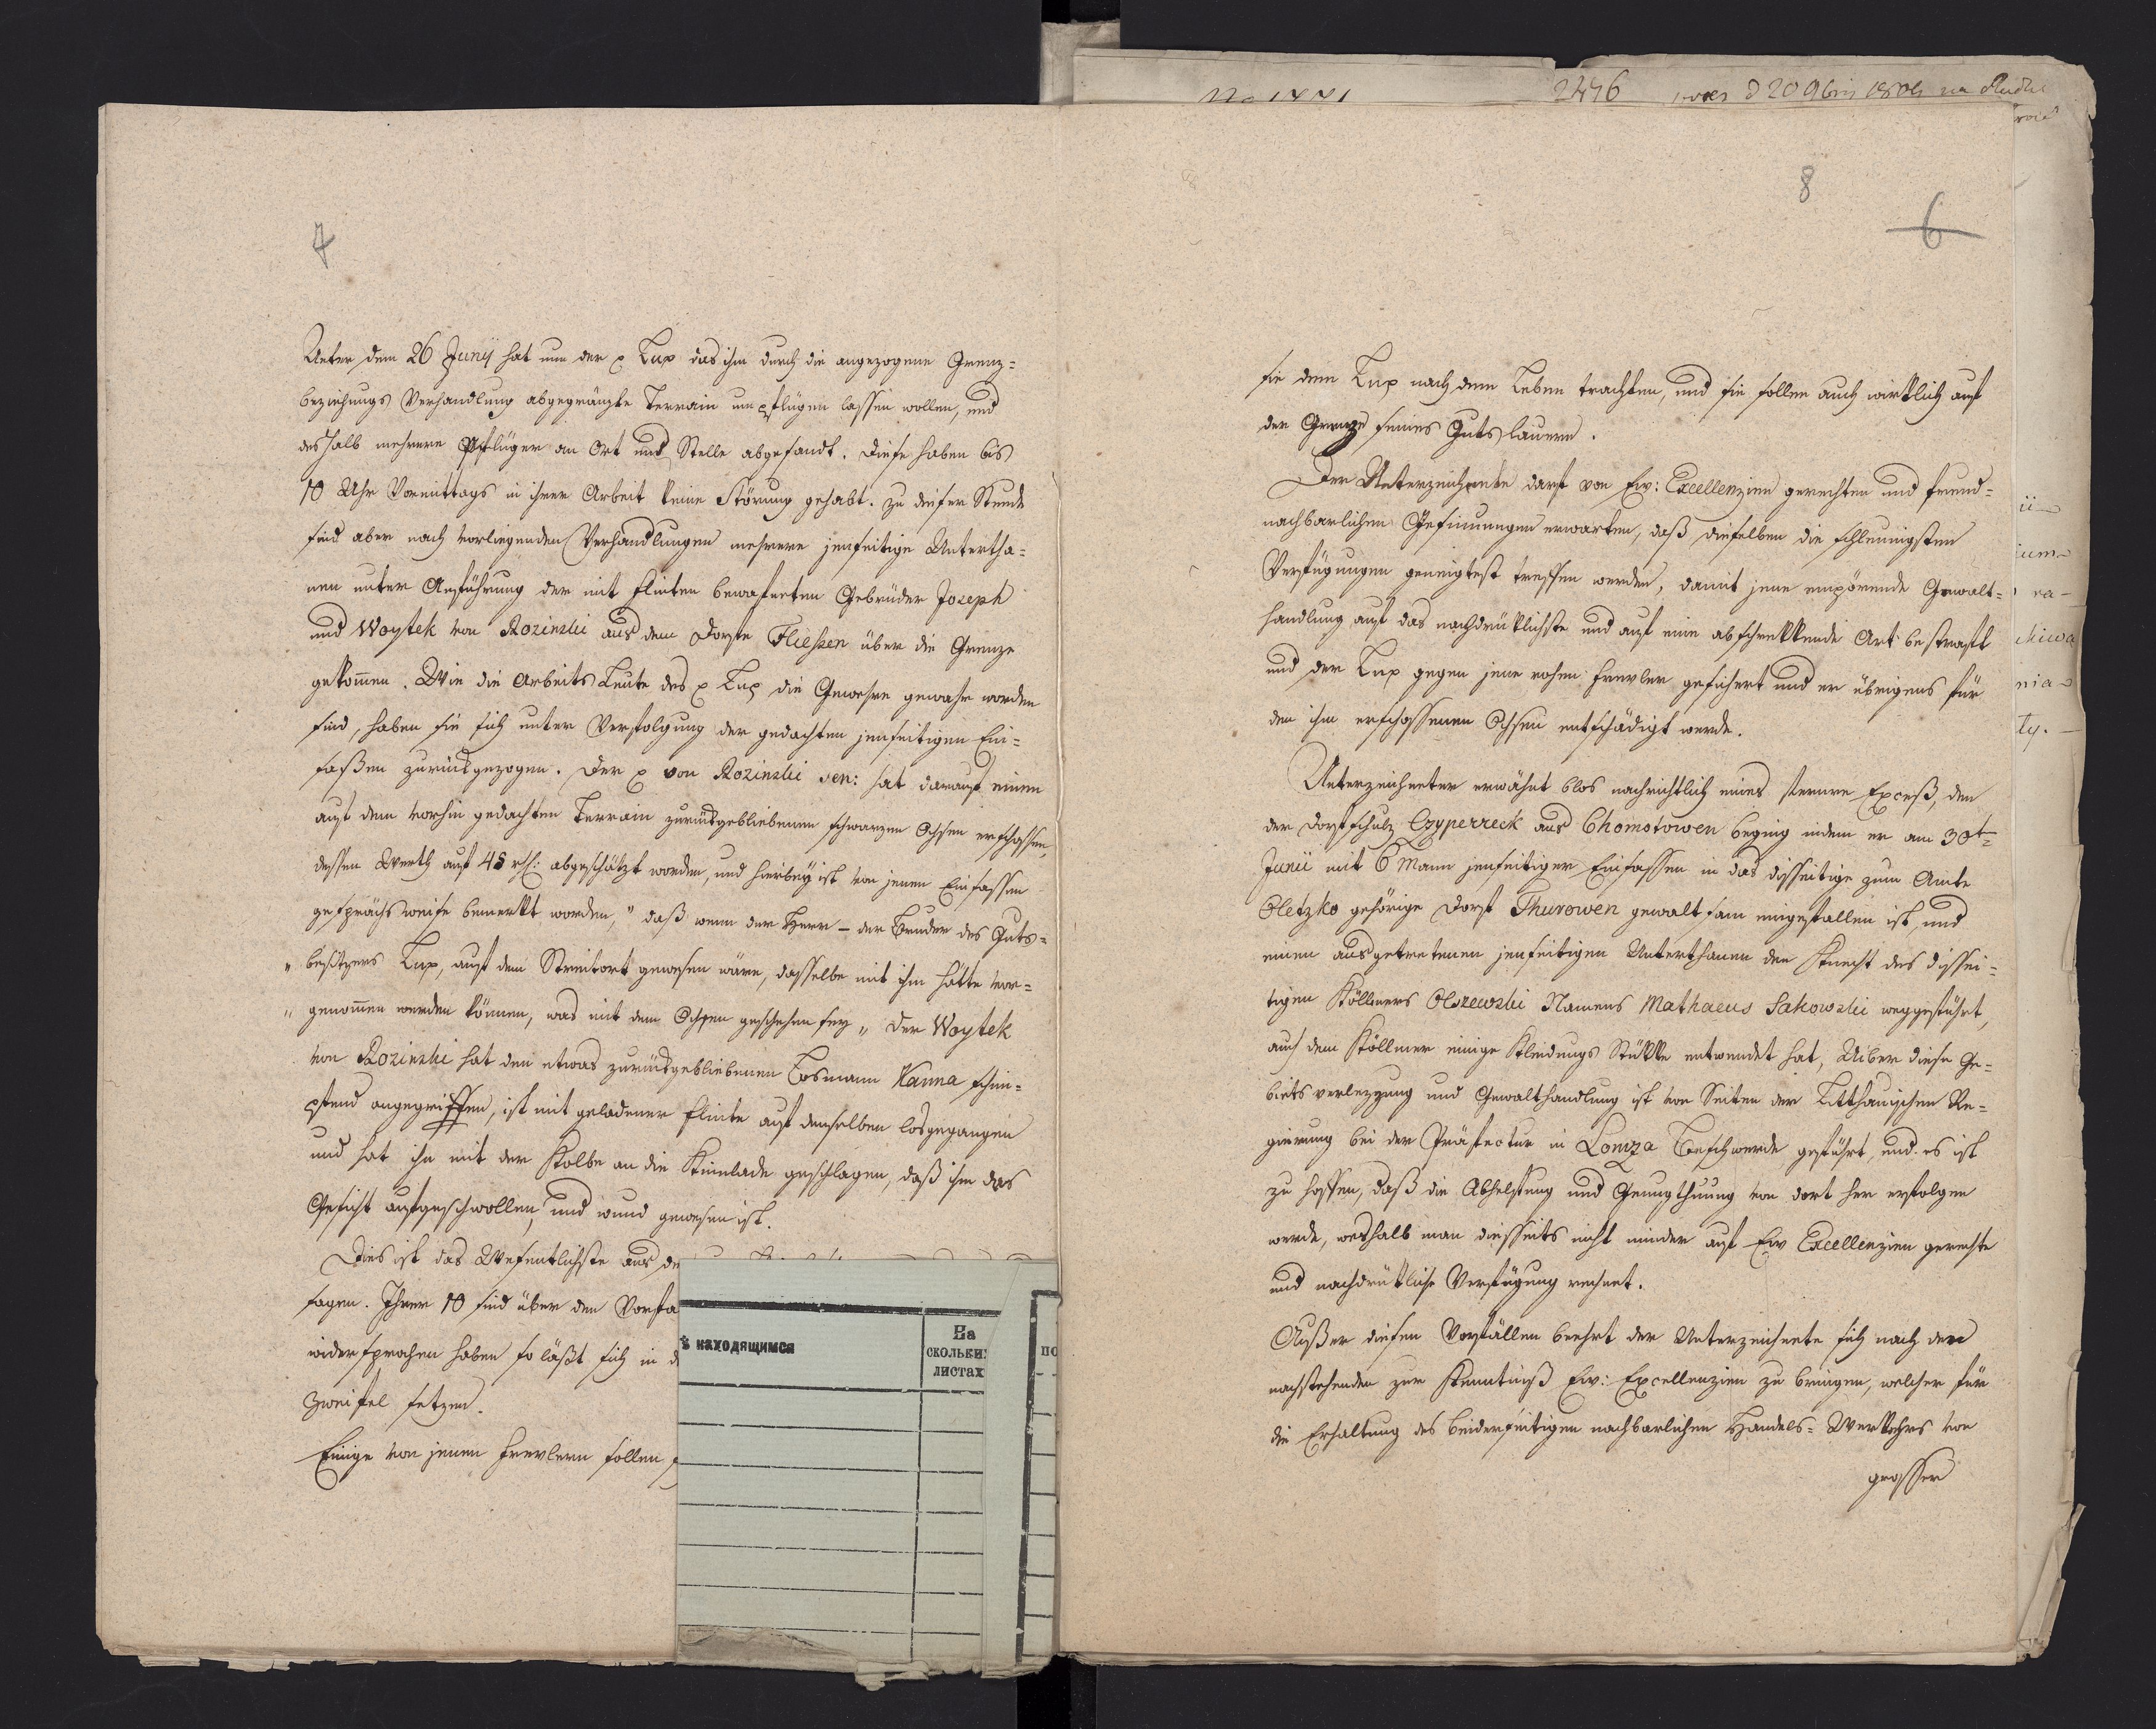 4
Unter dem 26 Junij hat nun der p Lux das ihm durch die angezogene Grenz=
beziehungs Verhandlung abgegränzte Terrain umpflügen lassen wollen, und
deshalb mehrere Pflüger an Ort und Stelle abgesandt. Diese haben bis
10 Uhr Vormittags in ihrer Arbeit keine Störung gehabt. Zu dieser Stunde
sind aber nach vorliegenden Verhandlungen mehrere jenseitige Untertha=
nen unter Anführung der mit Flinten bewafneten Gebrüder Joseph
und Woytek von Rozinski aus dem Dorfe Fliessen über die Grenze
gekommen. Wie die Arbeits Leute des p Lux die Gewehre gewahr worden
sind, haben sie sich unter Verfolgung der gedachten jenseitigen Ein=
saßen zurückgezogen. Der p von Rozinski sen: hat darauf einen
auf dem vorhin gedachten Terrain zurückgebliebenen schwarzen Ochsen erschossen,
dessen Werth auf 45 rth: abgeschätzt worden, und hierbey ist von jenen Einsassen
gesprächsweise bemerkt worden, „ daß wenn der Herr – der Bruder des Guts=
„ besitzers Lux, auf dem Streitort gewesen wäre, dasselbe mit ihm hätte vor=
„ genommen werden können, was mit dem Ochsen geschehen sey „ Der Woytek
von Rozinski hat den etwas zurückgebliebenen Losmann Kanna schim=
pfend angegriffen, ist mit geladener Flinte auf denselben losgegangen
und hat ihn mit der Kolbe an die Kinnlade geschlagen, daß ihm das
Gesicht aufgeschwollen, und wund gewesen ist.
Dies ist das Wesentlichste aus
sagen. Ihrer 10 sind über den
widersprochen haben so läßt sich in
Zweifel setzen.
Einige von jenen Frevlern sollen
ъ находящимся
На
скольки
листах
по
2476
d 20 9bris
8
6
sie dem Lux nach dem Leben trachten, und sie sollen auch wirklich auf
der Grenze seines Guts lauern.
Der Unterzeichnete darf von Ew: Excellenzien gerechten und freund=
nachbarlichen Gesinnungen erwarten, daß dieselben die schleunigsten
Verfügungen geneigtest treffen werden, damit jene empörende Gewalt=
handlung auf das nachdrüklichste und auf eine abschrekkende Art bestraft
und der Lux gegen jene rohen Frevler gesichert und er übrigens für
den ihm erschossenen Ochsen entschädigt werde.
Unterzeichneter erwähnt blos nachrichtlich eines ferneren Exceß, den
der Dorfschulz Czyperreck aus Chomotowen beging indem er am 30t
Junii mit 6 Mann jenseitiger Einsassen in das disseitige zum Amte
Oletzko gehörige Dorf Thurowen gewaltsam eingefallen ist, und
einen ausgetretenen jenseitigen Unterthanen den Knecht des dissei=
tigen Köllmers Olszewski Namens Mathaeus Sakowski weggeführt,
auch dem Köllmer einige Kleidungs Stükke entwendet hat, Ueber diese Ge=
biets verlezzung und Gewalthandlung ist von Seiten der Litthauischen Re=
gierung bei der Präfectur in Lomza Beschwerde geführt, und es ist
zu hoffen, daß die Abhelfung und Genugthuung von dort her erfolgen
werde, weshalb man diesseits nicht minder auf Ew Excellenzien gerechte
und nachdrükliche Verfügung rechnet.
Außer diesen Vorfällen beehrt der Unterzeichnete sich noch den
nachstehenden zur Kenntniß Ew: Excellenzien zu bringen, welcher für
die Erhaltung des beiderseitigen nachbarlichen Handels= Verkehrs von
grosser
nia
ty.